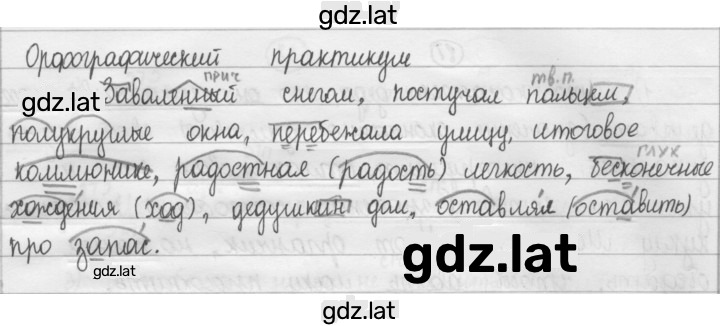 gdz.lat
Орфографический практикум
прич тв.п.
gdz.lat Заваленный снегом, постучал пальцем,
полукруглые окна, перебежала улицу, итоговое
глух
коллюнике, радостная (радость) легкость, бесконечные
хождения (ход), дедушкин дом, оставлял (оставить)
про запас.
gdz.lat
gdz.lat
gdz.lat